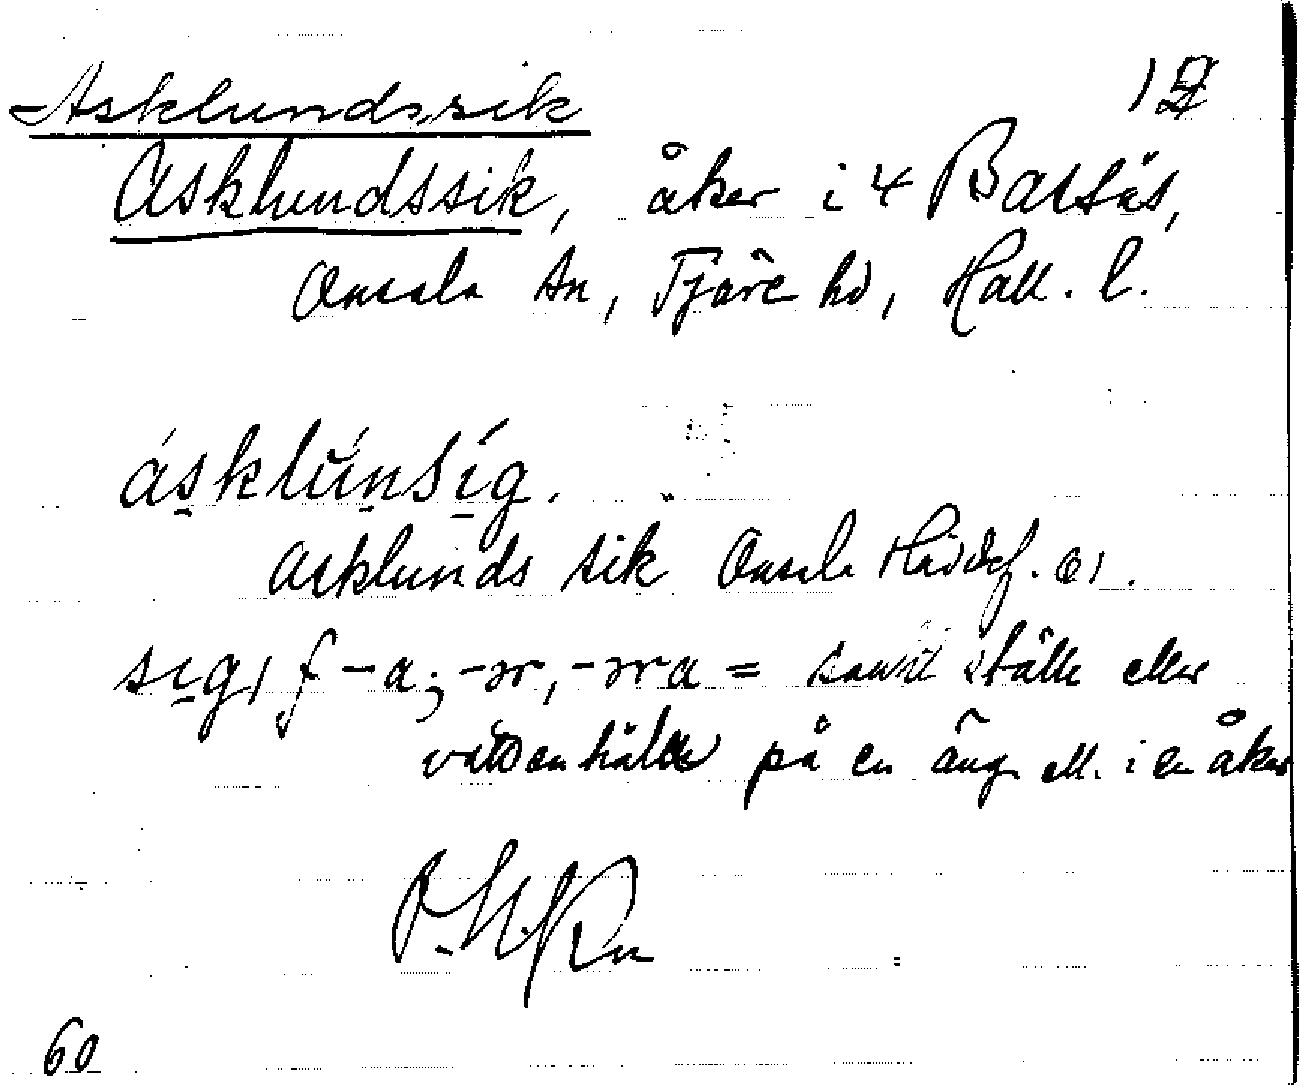 Asklundssik
Asklundssik, åker i 4 Bassås,
Onsala sn, Fjäre hd, Hall. l.
ásklúnsíg.
Asklunds sik Onsala
sig, f -a; -ər, -əra = sankt ställe eller
vattenhåla på en äng ell. i en åker
60